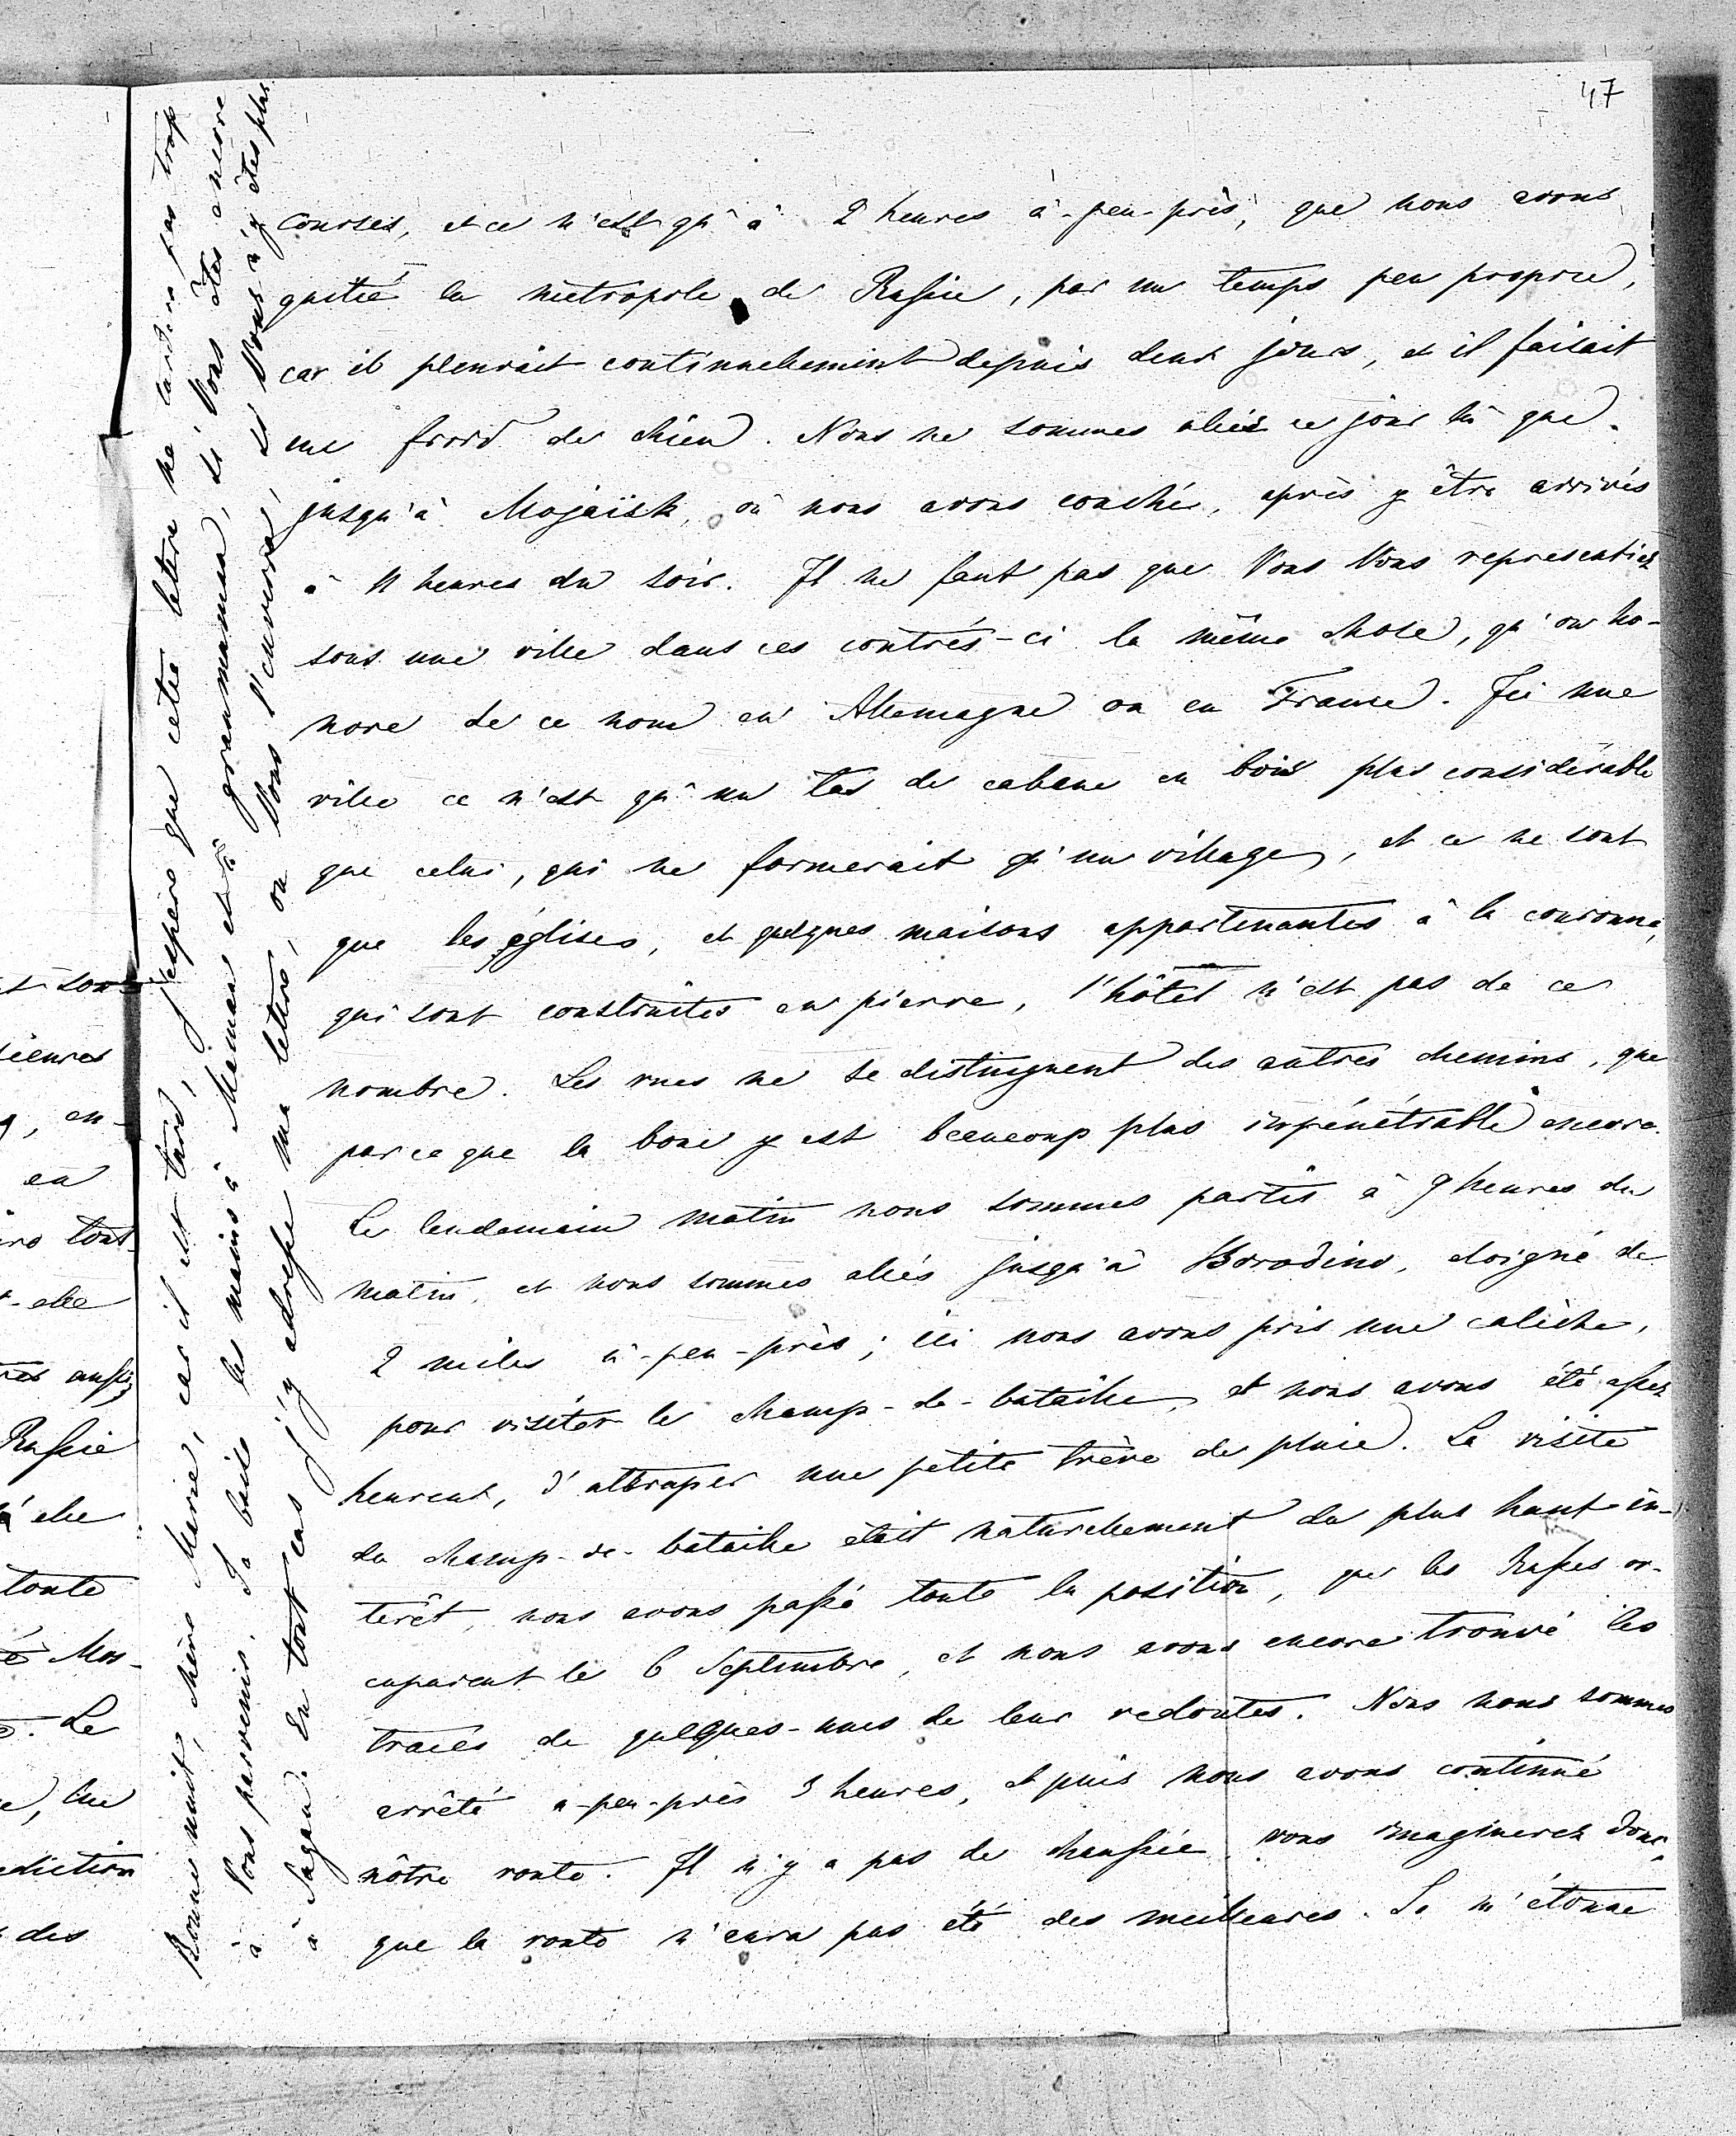 47
courses, et ce n'est qu'à 2 heures à-peu-près, que nous avons
quité la métropole de Russie, par un temps peu propre,
car il pleuvait continuellement depuis deux jours, et il faisait
un froid de chien. Nous ne sommes allés ce jour là que
jusqu'à Mojaïsk, où nous avons couchés, après y être arrivés
à 11 heures du soir. Il ne faut pas que Vous Vous representiez
sous une ville dans ces contrés-ci la même chose, qu'on ho-
nore de ce nom en Allemagne ou en France. Ici une
ville ce n'est qu'un tas de cabane en bois plus considérable
que celui, qui ne formerait qu'un village, et ce ne sont
que les églises, et quelques maisons appartenantes à la couronne,
qui sont construites en pierre, l'hôtel n'est pas de ce
nombre. Les rues ne se distinguent des autres chemins, que
parce que la boue y est beaucoup plus impénétrable encore.
Le lendemain matin nous sommes partis à 9 heures du
matin, et nous sommes allés jusqu'à Borodino, eloigné de
2 miles à-peu-près; ici nous avons pris une calèche,
pour visiter le champ-de-bataille, et nous avons été assez
heureux, d'attraper une petite trève de pluie. La visite
du champ-de-bataille était naturellement du plus haut in-
terêt, nous avons passé toute la position, que les Russes oc-
cuparent le 6 Septembre, et nous avons encore trouvé les
traces de quelques-unes de leur redoutes. Nous nous sommes
arrêté a-peu-près 3 heures, et puis nous avons continué
nôtre route. Il n'y a pas de chaussée, vous imaginerez donc,
que la route n'aura pas été des meilleures. Je m'étonne
Bonne nuit, chère Marie, car il est tard, j'espère que cette lettre ne tardera pas trop
à Vous parvenir. Je baise les mains à Maman et à granmaman, si Vous êtes encore
à Sagan. En tout cas j'y adresse ma lettre, on Vous l'enverra, si Vous n'y êtes plus.
et sont
en-
en
tout-
-elle
aussi,
Russie
elle
toute
Mos-
Le
une
des